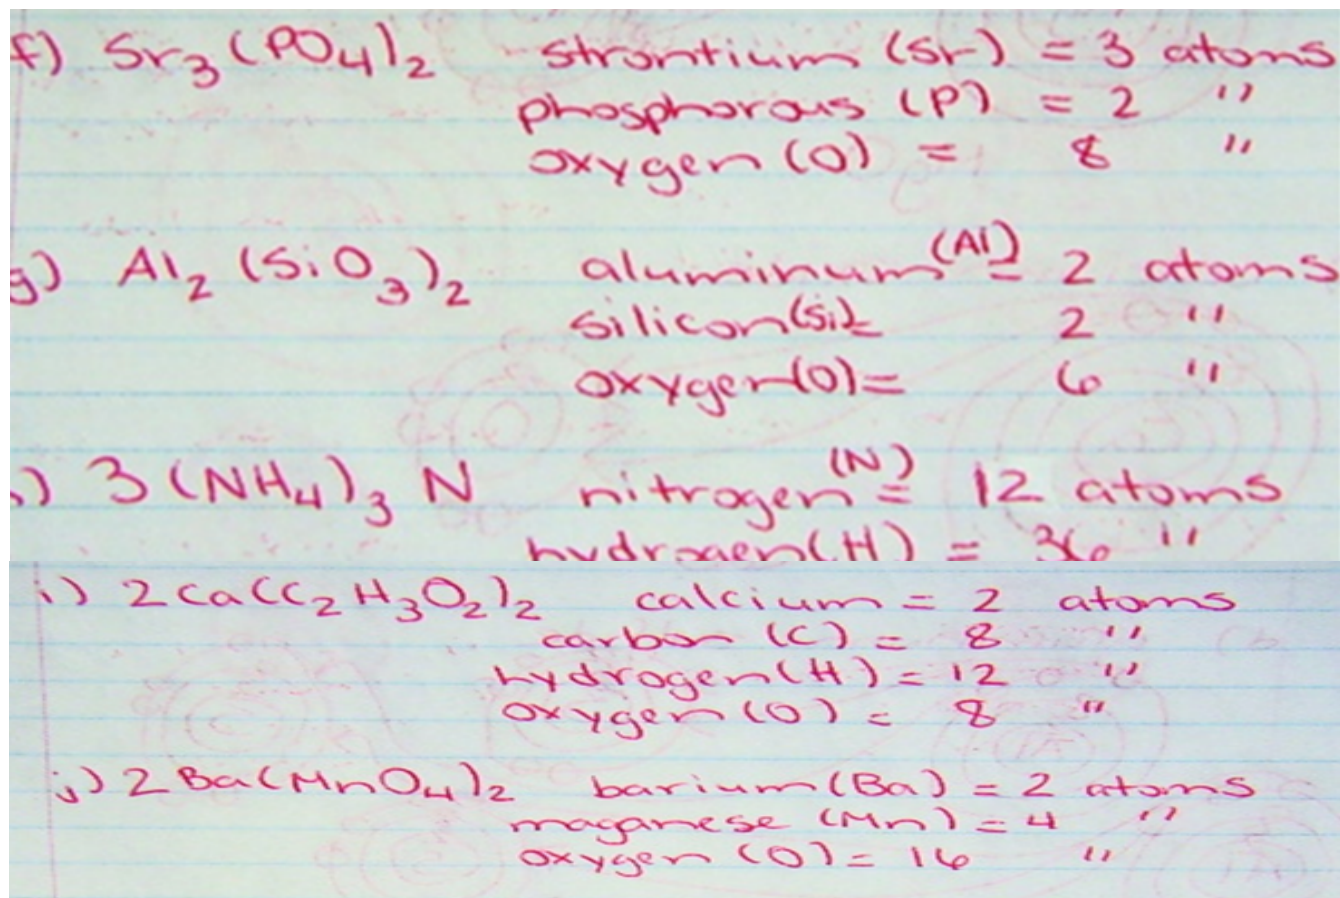 f) Sr₃(PO₄)₂ strontium (Sr) = 3 atoms
phosphorous (P) = 2 "
oxygen (O) = 8 "
g) Al₂(SiO₃)₂ aluminum (Al) = 2 atoms
silicon (Si) = 2 "
oxygen (O) = 6 "
) 3(NH₄)₃N nitrogen (N) = 12 atoms
hydrogen (H) = 36 "
i) 2Ca(C₂H₃O₂)₂ calcium = 2 atoms
carbon (C) = 8 "
hydrogen (H) = 12 "
oxygen (O) = 8 "
j) 2Ba(MnO₄)₂ barium (Ba) = 2 atoms
maganese (Mn) = 4 "
oxygen (O) = 16 "